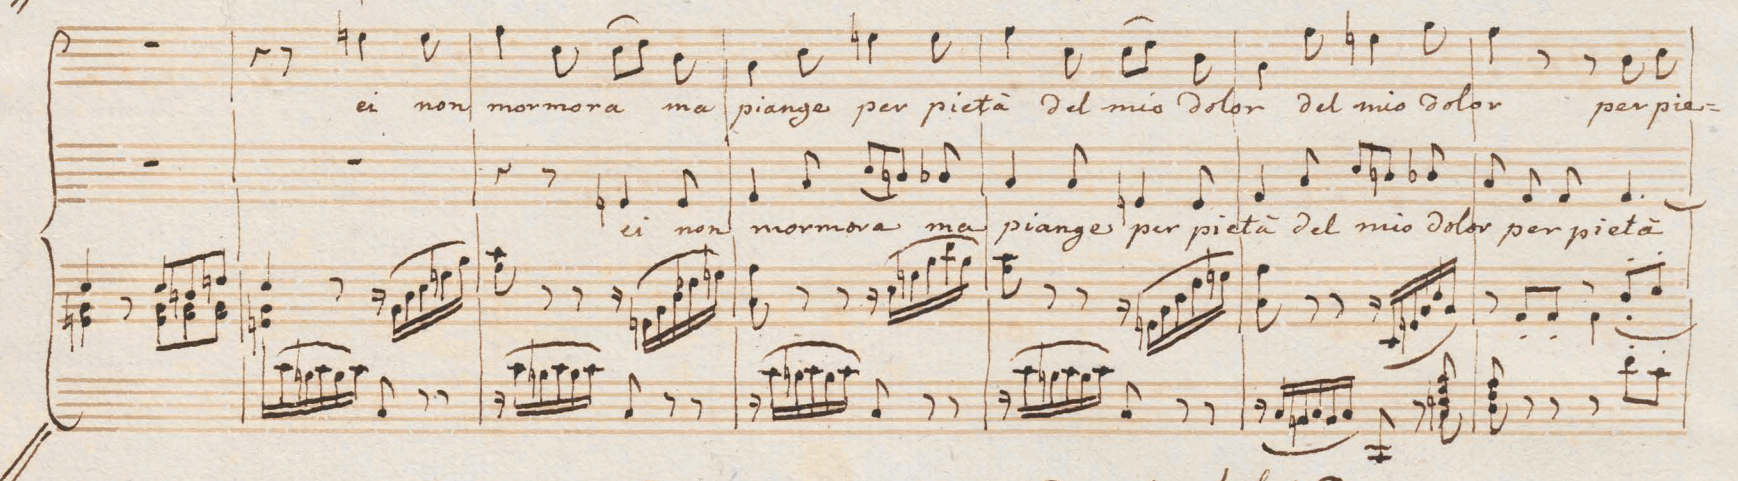 ei non mormora ma piange per pietà del mio dolor del mio dolor per pie=
ei non mormora ma piange per pietà del mio dolor per pietà